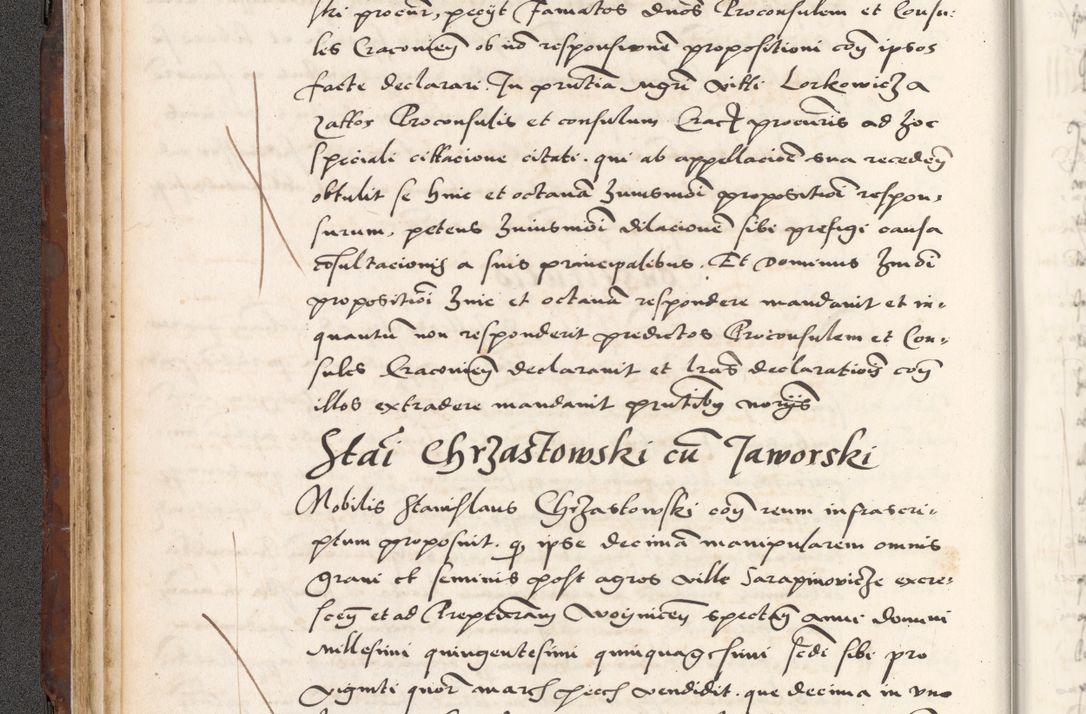 ski procur, petijt famatos dnos Proconsulem et Consu:
les Cracovien ob no responsionem propositioni con ipsos
facte declarari. In pntia Mgri Vitti Lorkowicz a
Proconsulis et consulum Crac procuris ad hoc
speciali cittacione citati. qui ab appellacioe sua receden
obtulit se hinc et octava huiusmodi propositioi respon,
surum, petens huiusmodi dilacionem sibi prefigi causa
cosultacionis a suis principalibus. Et Dominus hmoi
propositioi hinc et octavam respondere mandavit et in:
quantu non responderit predictos Proconsulem et Con:
sules Cracovien declaravit et lras declarationis con
illos extradere mandavit pntibus
Stai Chrzastowski cu Jaworski
Nobilis Stanislaus Chrzastowski con reum infrascri:
ptum proposuit. q ipse decima manipularem omnis
grani et seminis post agros ville Sarapinovicze excre:
scen et ad Prepturam Woynicen spectan anni domini
Millesimi quingentesimi quinquagesimi sedi sibi pro
viginti quor march pecch vendidit. que decima in uno